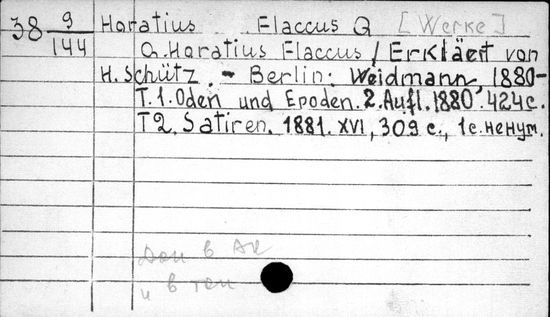 38 9/144 Horatius Flaccus Q [Werke]
Q. Horatius Flaccus / Erklärt von
H. Schütz. - Berlin: Weidmann, 1880-
T. 1. Oden und Epoden. 2. Aufl. 1880. 424 с.
T 2. Satiren. 1881. XVI, 309 с., 1 с. ненум.
Доп в АК
и в ген